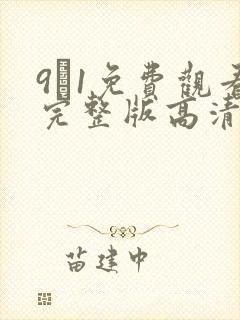 9 1免費觀看
完整版高清
苗建中